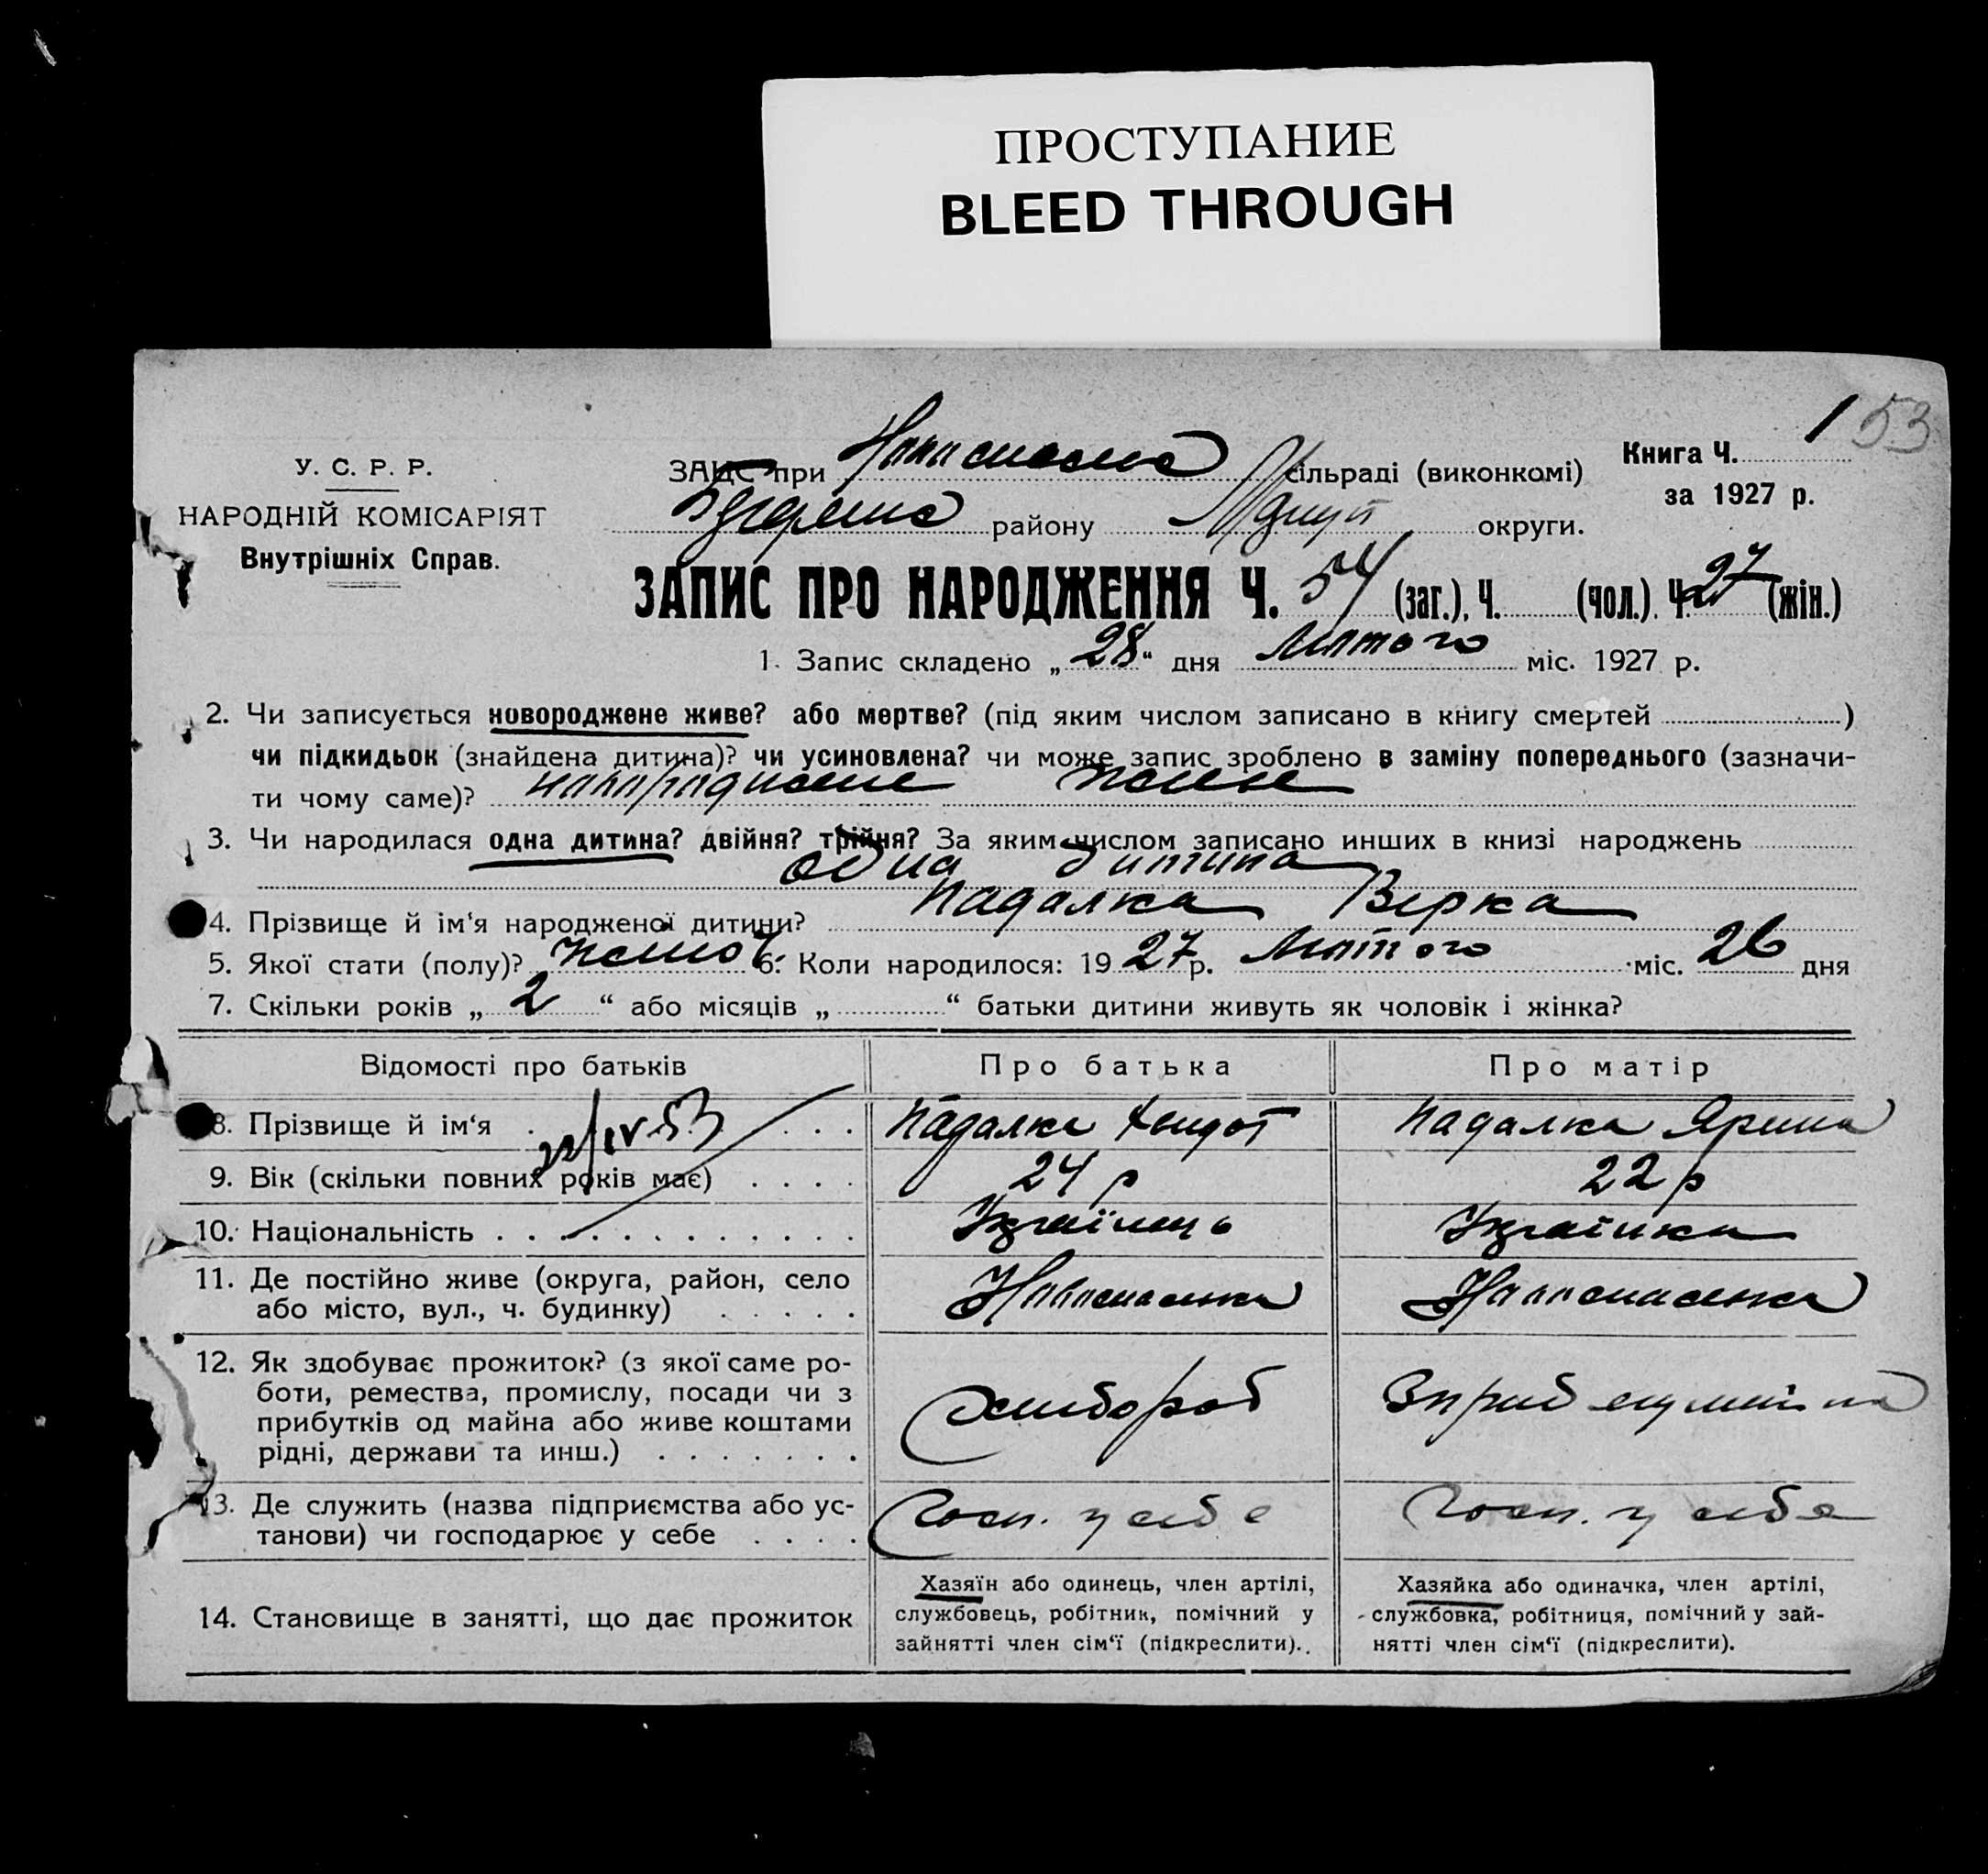 ПРОСТУПАНИЕ
BLEED THROUGH
1 53
У. С. Р. Р.
НАРОДНІЙ КОМІСАРІЯТ
Внутрішніх Справ.
ЗАЦС при сільраді (виконкомі)
району округи.
Книга Ч.
за 1927 р.
ЗАПИС ПРО НАРОДЖЕННЯ Ч. 54 (заг.), Ч. (чол.). Ч. 27 (жін.)
1. Запис складено „ 28 “ дня Лютого міс. 1927 р.
2. Чи записується новороджене живе? або мертве? (під яким числом записано в книгу смертей )
чи підкидьок (знайдена дитина)? чи усиновлена? чи може запис зроблено в заміну попереднього (зазначи-
ти чому саме)?
3. Чи народилася одна дитина? двійня? трійня? За яким числом записано инших в книзі народжень
одна дитина
4. Прізвище й ім‘я народженої дитини? Падалка Вірка
5. Якої стати (полу)? 6. Коли народилося: 19 27 р. Лютого міс. 26 дня
7. Скільки років „ 2 “ або місяців „ “ батьки дитини живуть як чоловік і жінка?
Відомості про батьків Про батька Про матір
8. Прізвище й ім‘я Падалка Падалка Ярина
22/IV 53
9. Вік (скільки повних років має) 24 р 22 р
10. Національність Українець Українка
11. Де постійно живе (округа, район, село
або місто, вул., ч. будинку)
12. Як здобуває прожиток? (з якої саме ро-
боти, ремества, промислу, посади чи з
прибутків од майна або живе коштами
рідні, держави та инш.) Хлібороб
13. Де служить (назва підприємства або ус-
танови) чи господарює у себе Госп. у себе Госп. у себе
14. Становище в занятті, що дає прожиток
Хазяїн або одинець, член артілі,
службовець, робітник, помічний у
зайнятті член сім‘ї (підкреслити).
Хазяйка або одиначка, член артілі,
службовка, робітниця, помічний у зай-
нятті член сім‘ї (підкреслити).